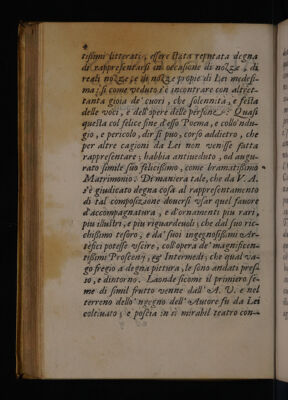 tissimi litterati, essere stata reputata degna
di rappresentarsi in occasione di nozze, di
reali nozze, e di nozze propie di Lei medesi-
ma; si come veduto s'è incontrare con altret-
tanta gioia de' cuori, che solennità, e festa
delle voci, e dell'opere delle persone? Quasi
questa col felice fine d'esso Poema, e collo ndu-
gio, e pericolo, dir si può, corso addietro, che
per altre cagioni da Lei non venisse fatta
rappresentare; habbia antiveduto, ed augu-
rato simile suo felicissimo, come bramatissimo
Matrimonio: Di maniera tale, che da V. A.
s'è giudicato degna cosa al rappresentamento
di tal composizione doversi usar quel favore
d'accompagnatura, e d'ornamenti piu rari,
piu illustri, e piu riguardevoli, che dal suo ric-
chissimo tesoro, e da' suoi ingegnosissimi Ar-
tefici potesse uscire, coll'opera de' magnificen-
tissimi Proscenij, & Intermedi; che qual va-
go fregio a degna pittura, le sono andati pres-
so, e dintorno. Laonde sicome il primiero se-
me di simil frutto venne dall' A. V. e nel
terreno dello 'ngegno dell' Autore fu da Lei
coltivato; e poscia in sì mirabil teatro con-